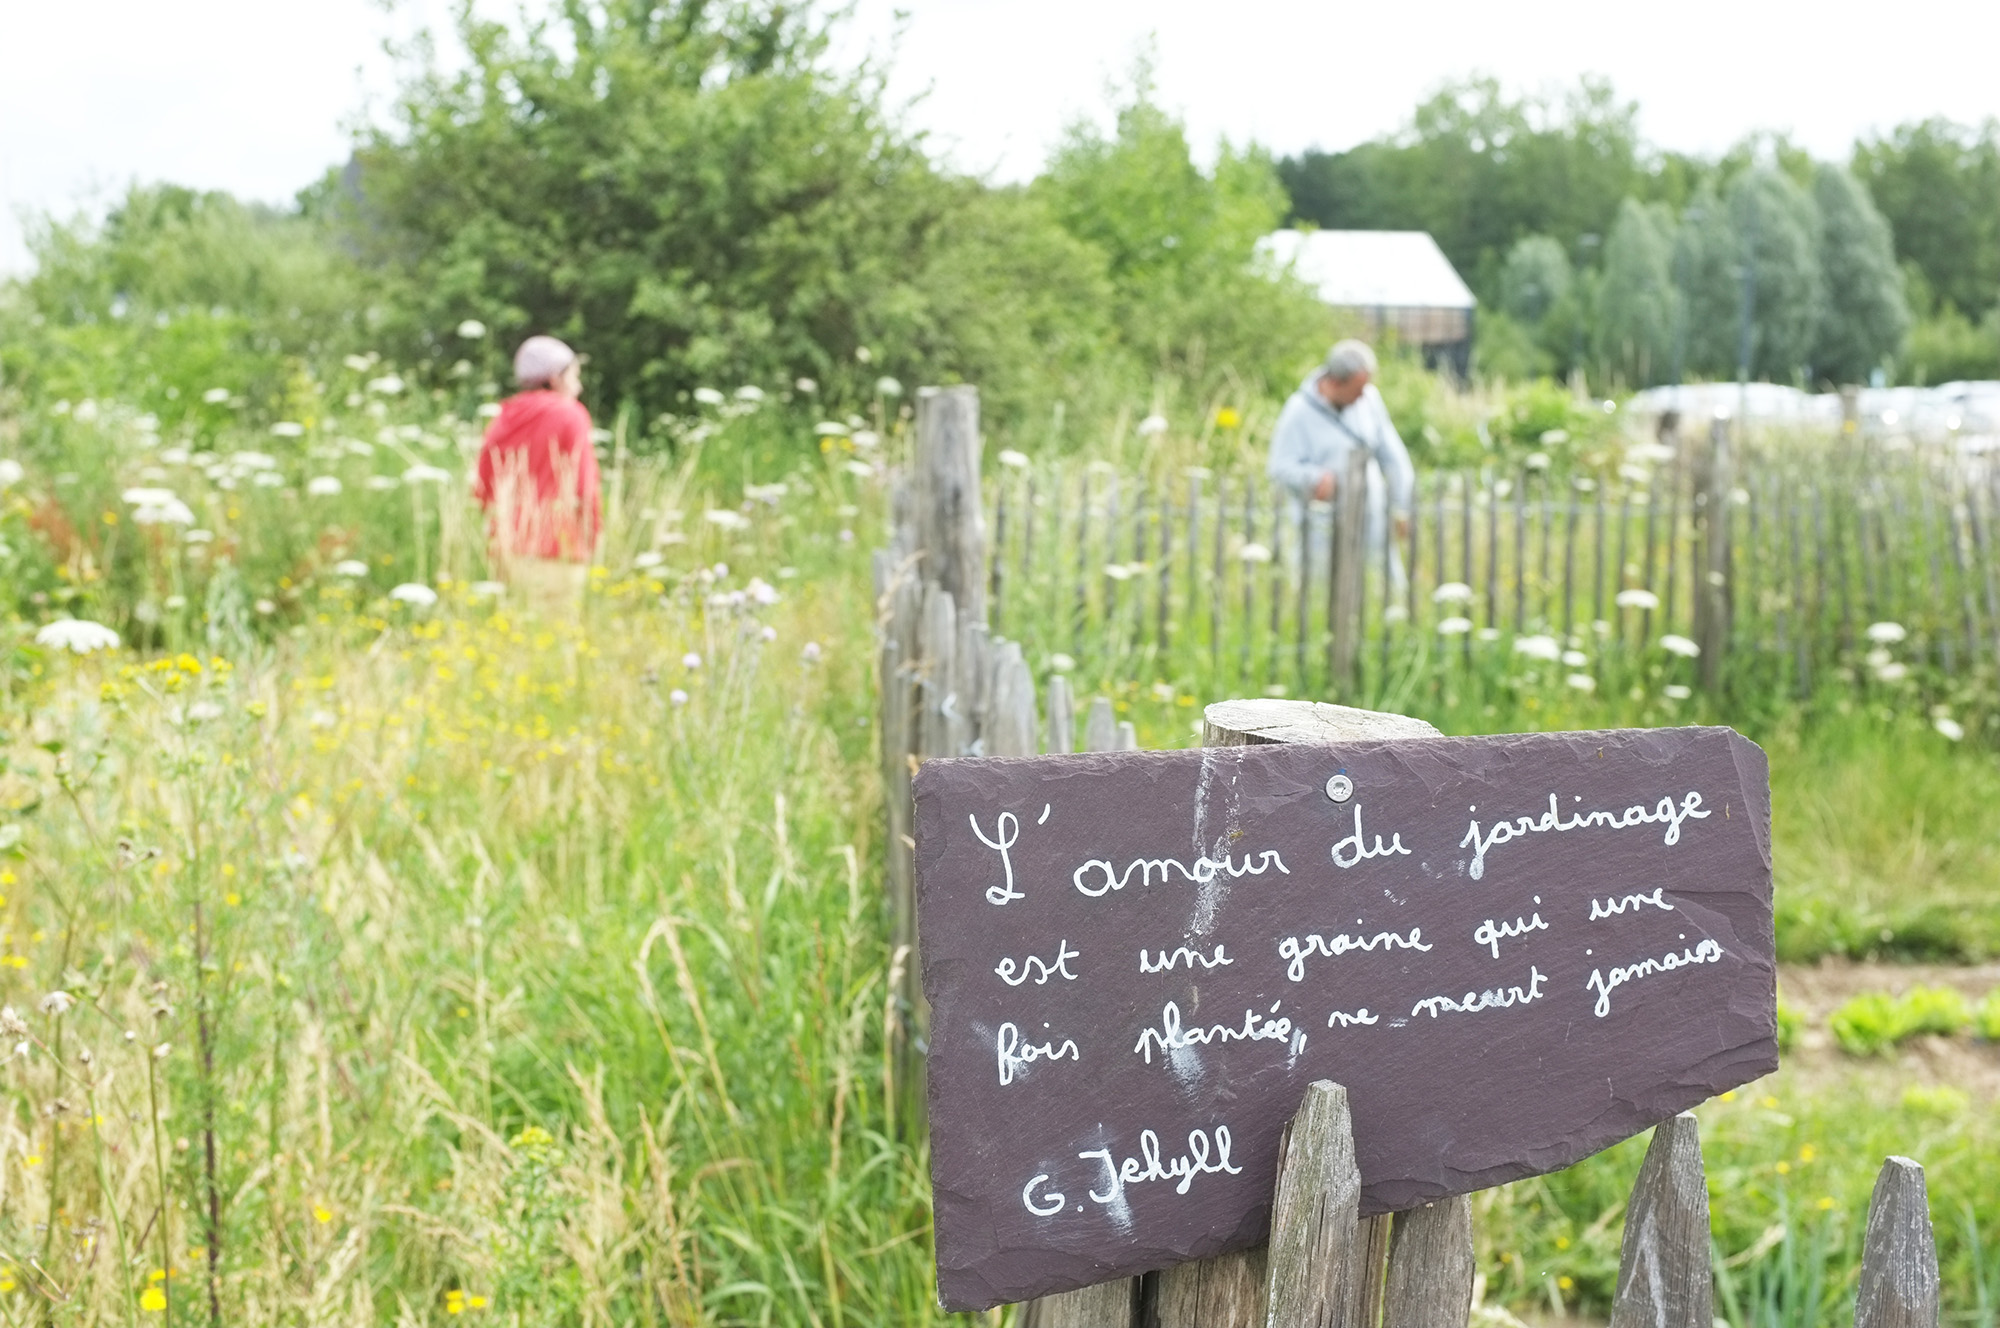 L'amour du jardinage
est une graine qui une
fois plantée, ne meurt jamais
G. Jekyll